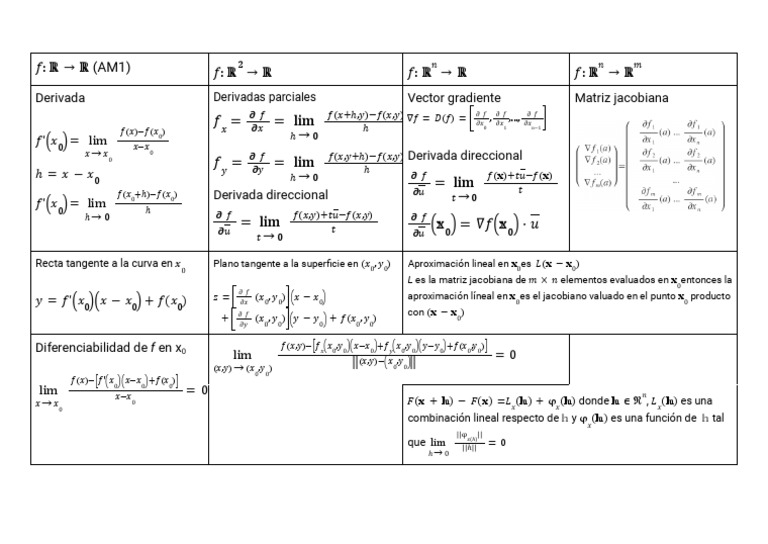 f: ℝ → ℝ (AM1)
f: ℝ² → ℝ
f: ℝⁿ → ℝ
f: ℝⁿ → ℝᵐ
Derivada
f'(x₀) = lim x→x₀ (f(x)−f(x₀))/(x−x₀)
h = x − x₀
f'(x₀) = lim h→0 (f(x₀+h)−f(x₀))/h
Derivadas parciales
fₓ = ∂f/∂x = lim h→0 (f(x+h,y)−f(x,y))/h
f_y = ∂f/∂y = lim h→0 (f(x,y+h)−f(x,y))/h
Derivada direccional
∂f/∂u̅ = lim t→0 (f(x,y)+tu̅−f(x,y))/t
Vector gradiente
∇f = D(f) = [∂f/∂x, ∂f/∂x, ..., ∂f/∂x]
Derivada direccional
∂f/∂u̅ = lim t→0 (f(𝐱)+tu̅−f(𝐱))/t
∂f/∂u̅ (𝐱₀) = ∇f(𝐱₀) · u̅
Matriz jacobiana
(∇f₁(a) ∇f₂(a) ... ∇fₘ(a)) = (∂f₁/∂x₁ (a) ... ∂f₁/∂xₙ (a)
∂f₂/∂x₁ (a) ... ∂f₂/∂xₙ (a)
...
∂fₘ/∂x₁ (a) ... ∂fₘ/∂xₙ (a))
Recta tangente a la curva en x₀
y = f'(x₀)(x − x₀) + f(x₀)
Plano tangente a la superficie en (x₀, y₀)
z = [∂f/∂x (x₀,y₀)](x − x₀)
+ [∂f/∂y (x₀,y₀)](y − y₀) + f(x₀, y₀)
Aproximación lineal en 𝐱₀es L(𝐱 − 𝐱₀)
L es la matriz jacobiana de m × n elementos evaluados en 𝐱₀entonces la
aproximación líneal en 𝐱₀es el jacobiano valuado en el punto 𝐱₀ producto
con (𝐱 − 𝐱₀)
Diferenciabilidad de f en x₀
lim x→x₀ (f(x)−[f'(x₀)(x−x₀)+f(x₀)])/(x−x₀) = 0
lim (x,y)→(x₀,y₀) (f(x,y)−[fₓ(x₀,y₀)(x−x₀)+f_y(x₀,y₀)(y−y₀)+f(x₀,y₀)])/||(x,y)−(x₀,y₀)|| = 0
F(𝐱 + 𝐡) − F(𝐱) =Lₓ(𝐡) + φₓ(𝐡) donde 𝐡 ∈ ℜⁿ, Lₓ(𝐡) es una
combinación lineal respecto de h y φₓ(𝐡) es una función de h tal
que lim h→0 ||φₓ(h)||/||h|| = 0